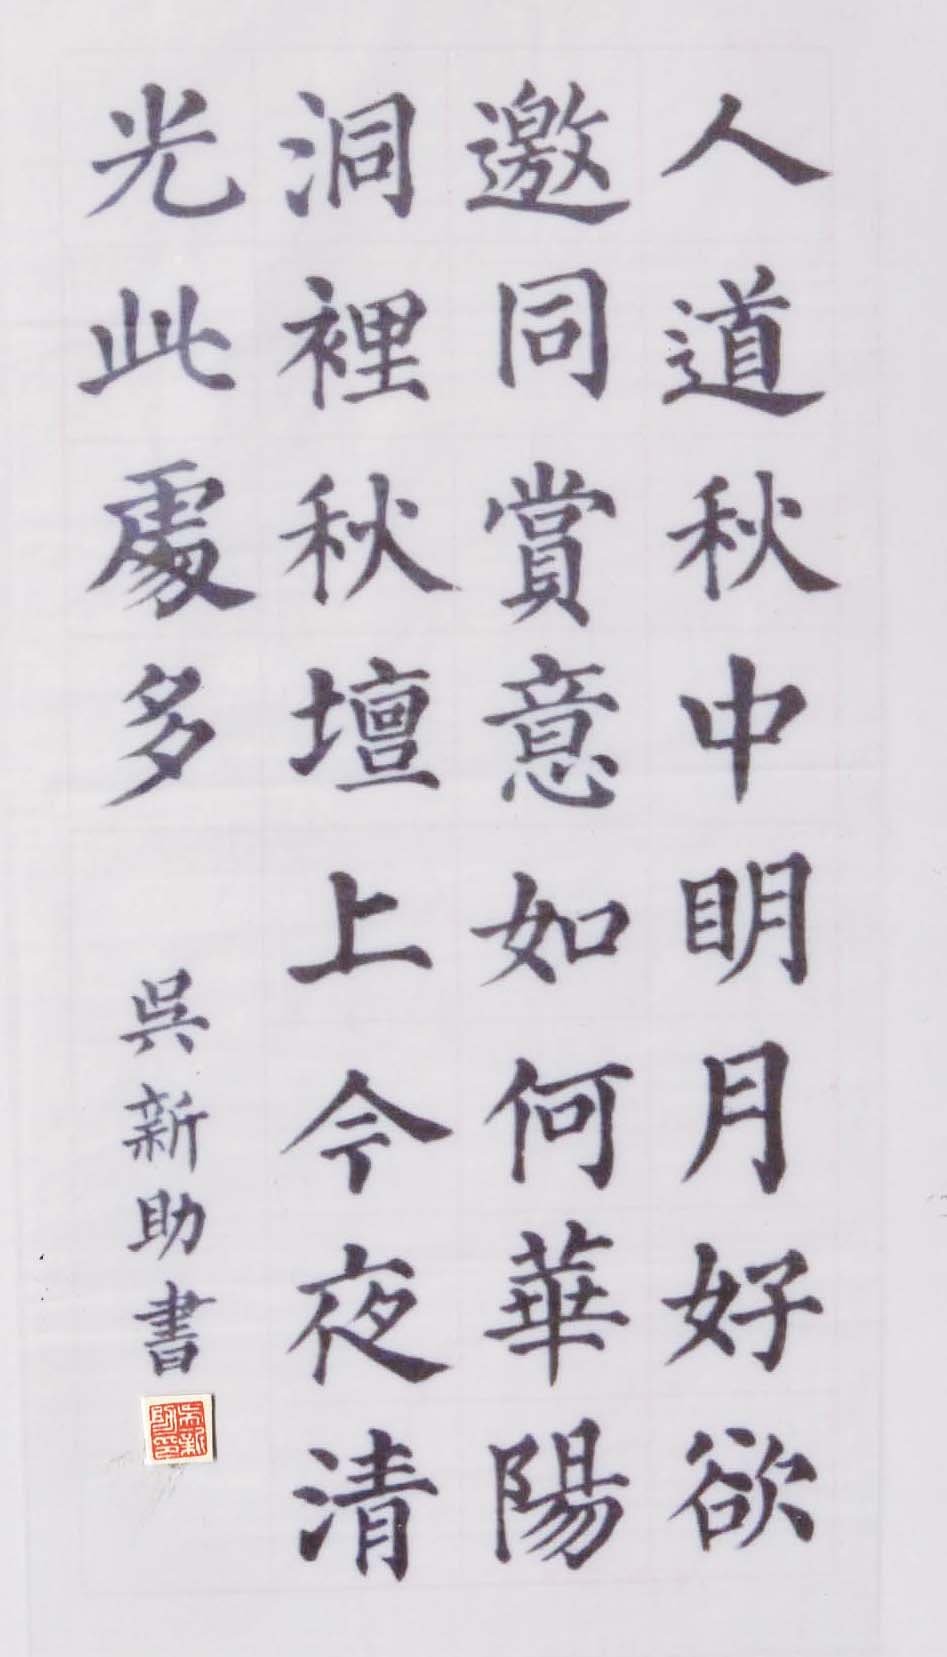 人道秋中明月好欲
邀同賞意如何華陽
洞裡秋壇上今夜清
光此處多
吳新助書
吳新助印